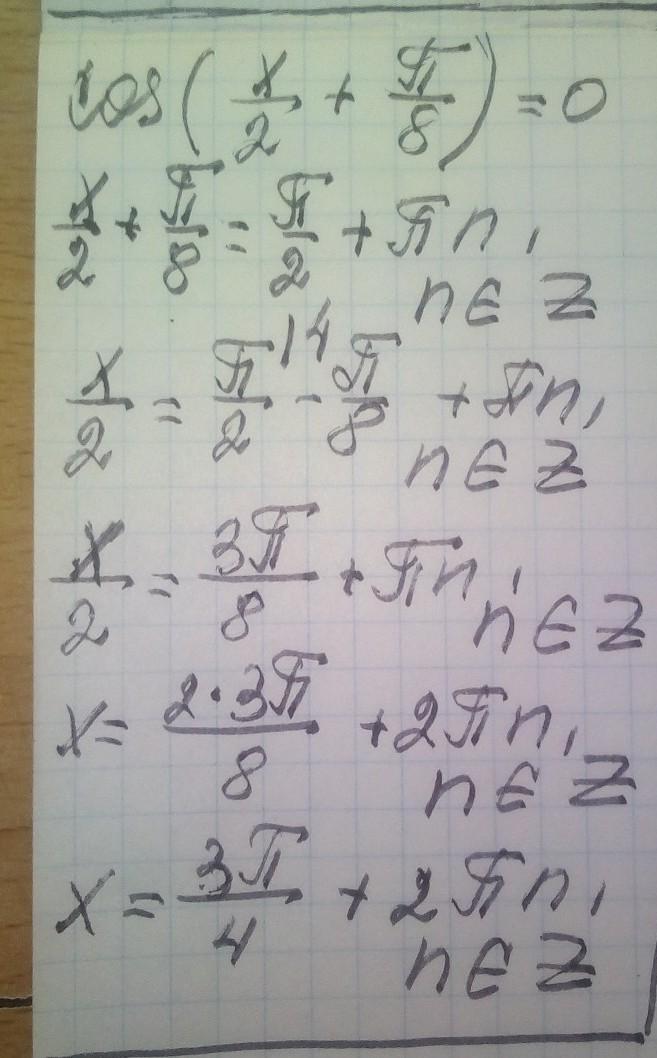 cos(x/2 + π/8) = 0
x/2 + π/8 = π/2 + πn,
n ∈ Z
x/2 = π/2 ^{14} - π/8 + πn,
n ∈ Z
x/2 = 3π/8 + πn,
n ∈ Z
x = 2·3π/8 + 2πn,
n ∈ Z
x = 3π/4 + 2πn,
n ∈ Z